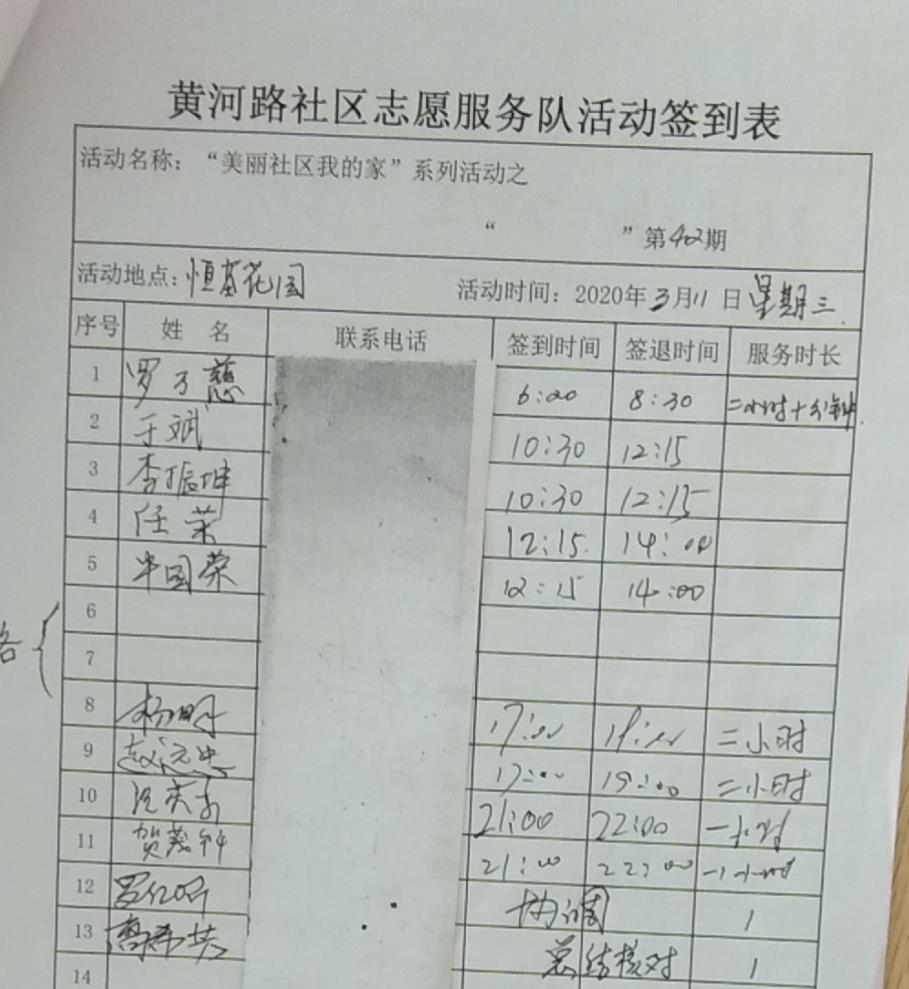 黄河路社区志愿服务队活动签到表
活动名称：“美丽社区我的家”系列活动之
“ ”第402期
活动地点：恒富花园 活动时间：2020年3月11日 星期三.
序号 姓名 联系电话 签到时间 签退时间 服务时长
1 罗 慈 6:20 8:30 二小时十分钟.
2 于斌 10:30 12:15
3 李振坤 10:30 12:15
4 任荣 12:15. 14:00
5 毕国荣 12:15 14:00
6
7
8 杨明 17:00 19:00 二小时
9 赵 忠 17:00 19:00 二小时
10 21:00 22:00 一小时
11 贺 21:00 22:00 一小时
12 罗 协调 1
13 高 总结核对 1
14